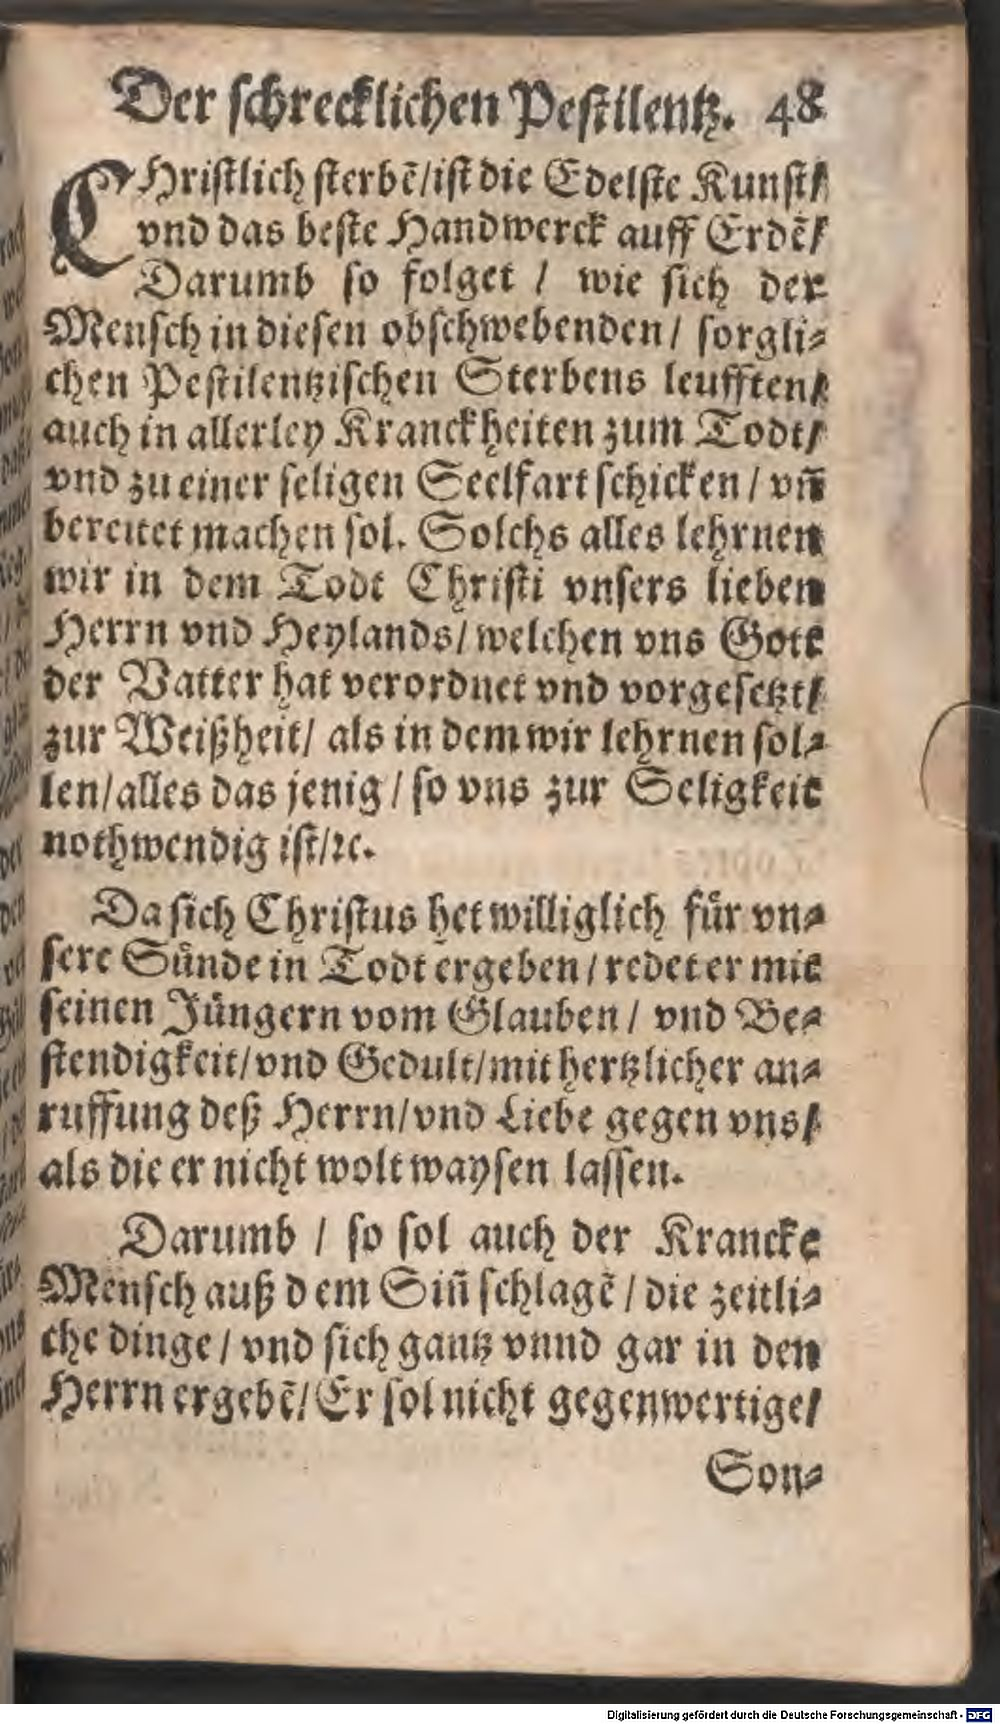 Der schrecklichen Pestilentz. 48
CHristlich sterbẽ/ist die Edelste Kunst/
vnd das beste Handwerck auff Erdẽ/
Darumb so folget / wie sich der
Mensch in diesen obschwebenden/ sorgli⸗
chen Pestilentzischen Sterbens leufften/
auch in allerley Kranckheiten zum Todt/
vnd zu einer seligen Seelfart schicken / vñ
bereitet machen sol. Solchs alles lehrnen
wir in dem Todt Christi vnsers lieben
Herrn vnd Heylands/ welchen vns Gott
der Vatter hat verordnet vnd vorgesetzt/
zur Weißheit/ als in dem wir lehrnen sol⸗
len/alles das jenig / so vns zur Seligkeit
nothwendig ist/ꝛc.
Da sich Christus het williglich fuͤr vn⸗
sere Suͤnde in Todt ergeben / redet er mit
seinen Juͤngern vom Glauben / vnd Be⸗
stendigkeit/vnd Gedult/mit hertzlicher an⸗
ruffung deß Herrn/vnd Liebe gegen vns/
als die er nicht wolt waysen lassen.
Darumb / so sol auch der Krancke
Mensch auß dem Siñ schlagẽ / die zeitli⸗
che dinge / vnd sich gantz vnnd gar in den
Herrn ergebẽ/ Er sol nicht gegenwertige/
Son⸗
Digitalisierung gefördert durch die Deutsche Forschungsgemeinschaft - DFG